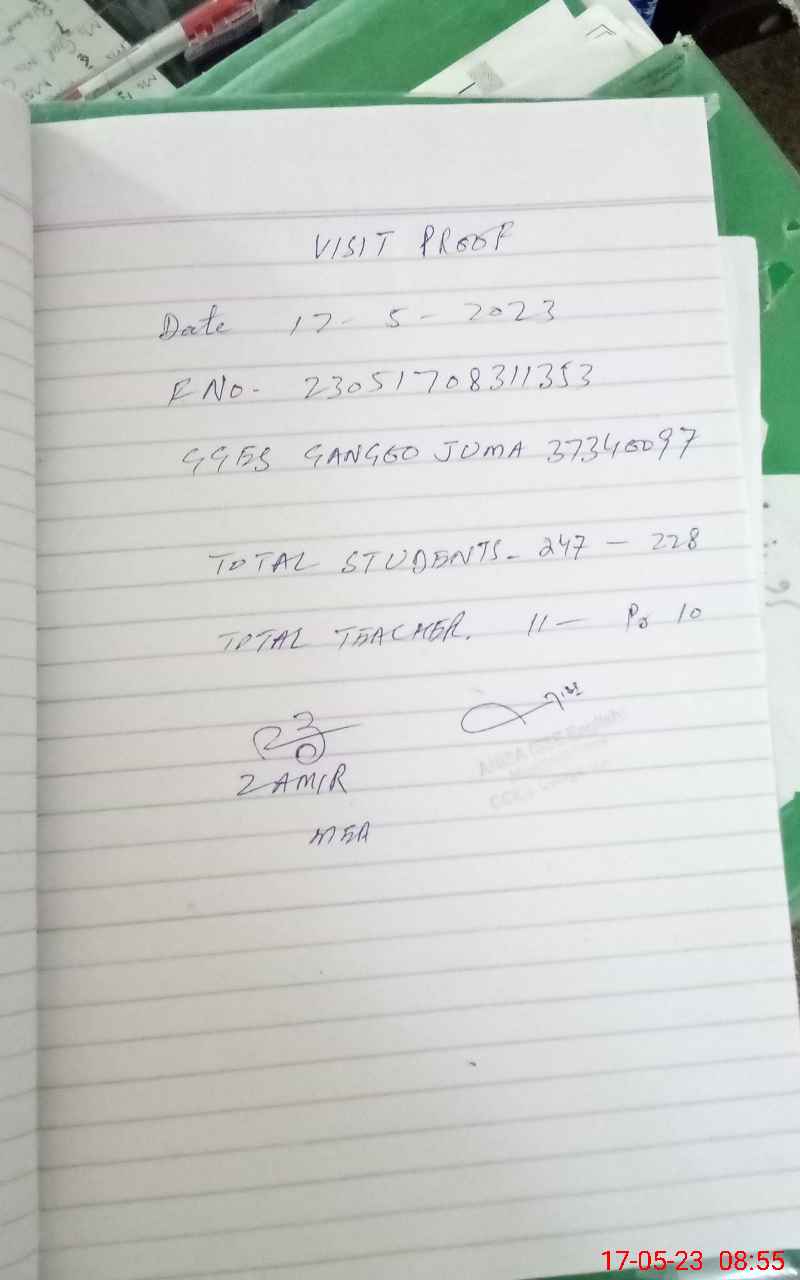 VISIT PROOF
Date 17-5-2023
F No- 23051708311353
GGES GANGGO JUMA 37340097
TOTAL STUDENTS- 247 - 228
TOTAL TEACHER. 11 - Po 10
ZAMIR
MEA
17-05-23 08:55